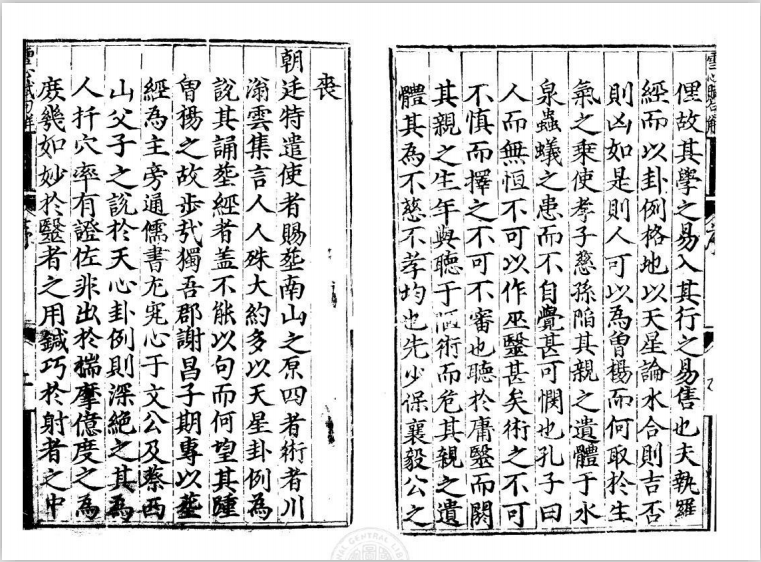 俚故其學之易入其行之易售也夫執羅
經而以卦例格地以天星論水合則吉否
則凶如是則人可以為曾楊而何取於生
氣之乘使孝子慈孫陷其親之遺體于水
泉蟲蟻之患而不自覺甚可憫也孔子曰
人而無恒不可以作巫醫甚矣術之不可
不慎而擇之不可不審也聽於庸醫而閼
其親之生年與聽于 術而危其親之遺
體其為不慈不孝均也先少保襄毅公之
喪
朝廷特遣使者賜塟南山之原四者術者川
滃雲集言人人殊大約多以天星卦例為
說其誦塟經者盖不能以句而何望其踵
曾楊之故步哉獨吾郡謝昌子期專以塟
經為主旁通儒書尤究心于文公及蔡西
山父子之說於天心卦例則深絕之其為
人扦穴率有證佐非出於揣摩億度之為
庻幾如妙於醫者之用鍼巧於射者之中